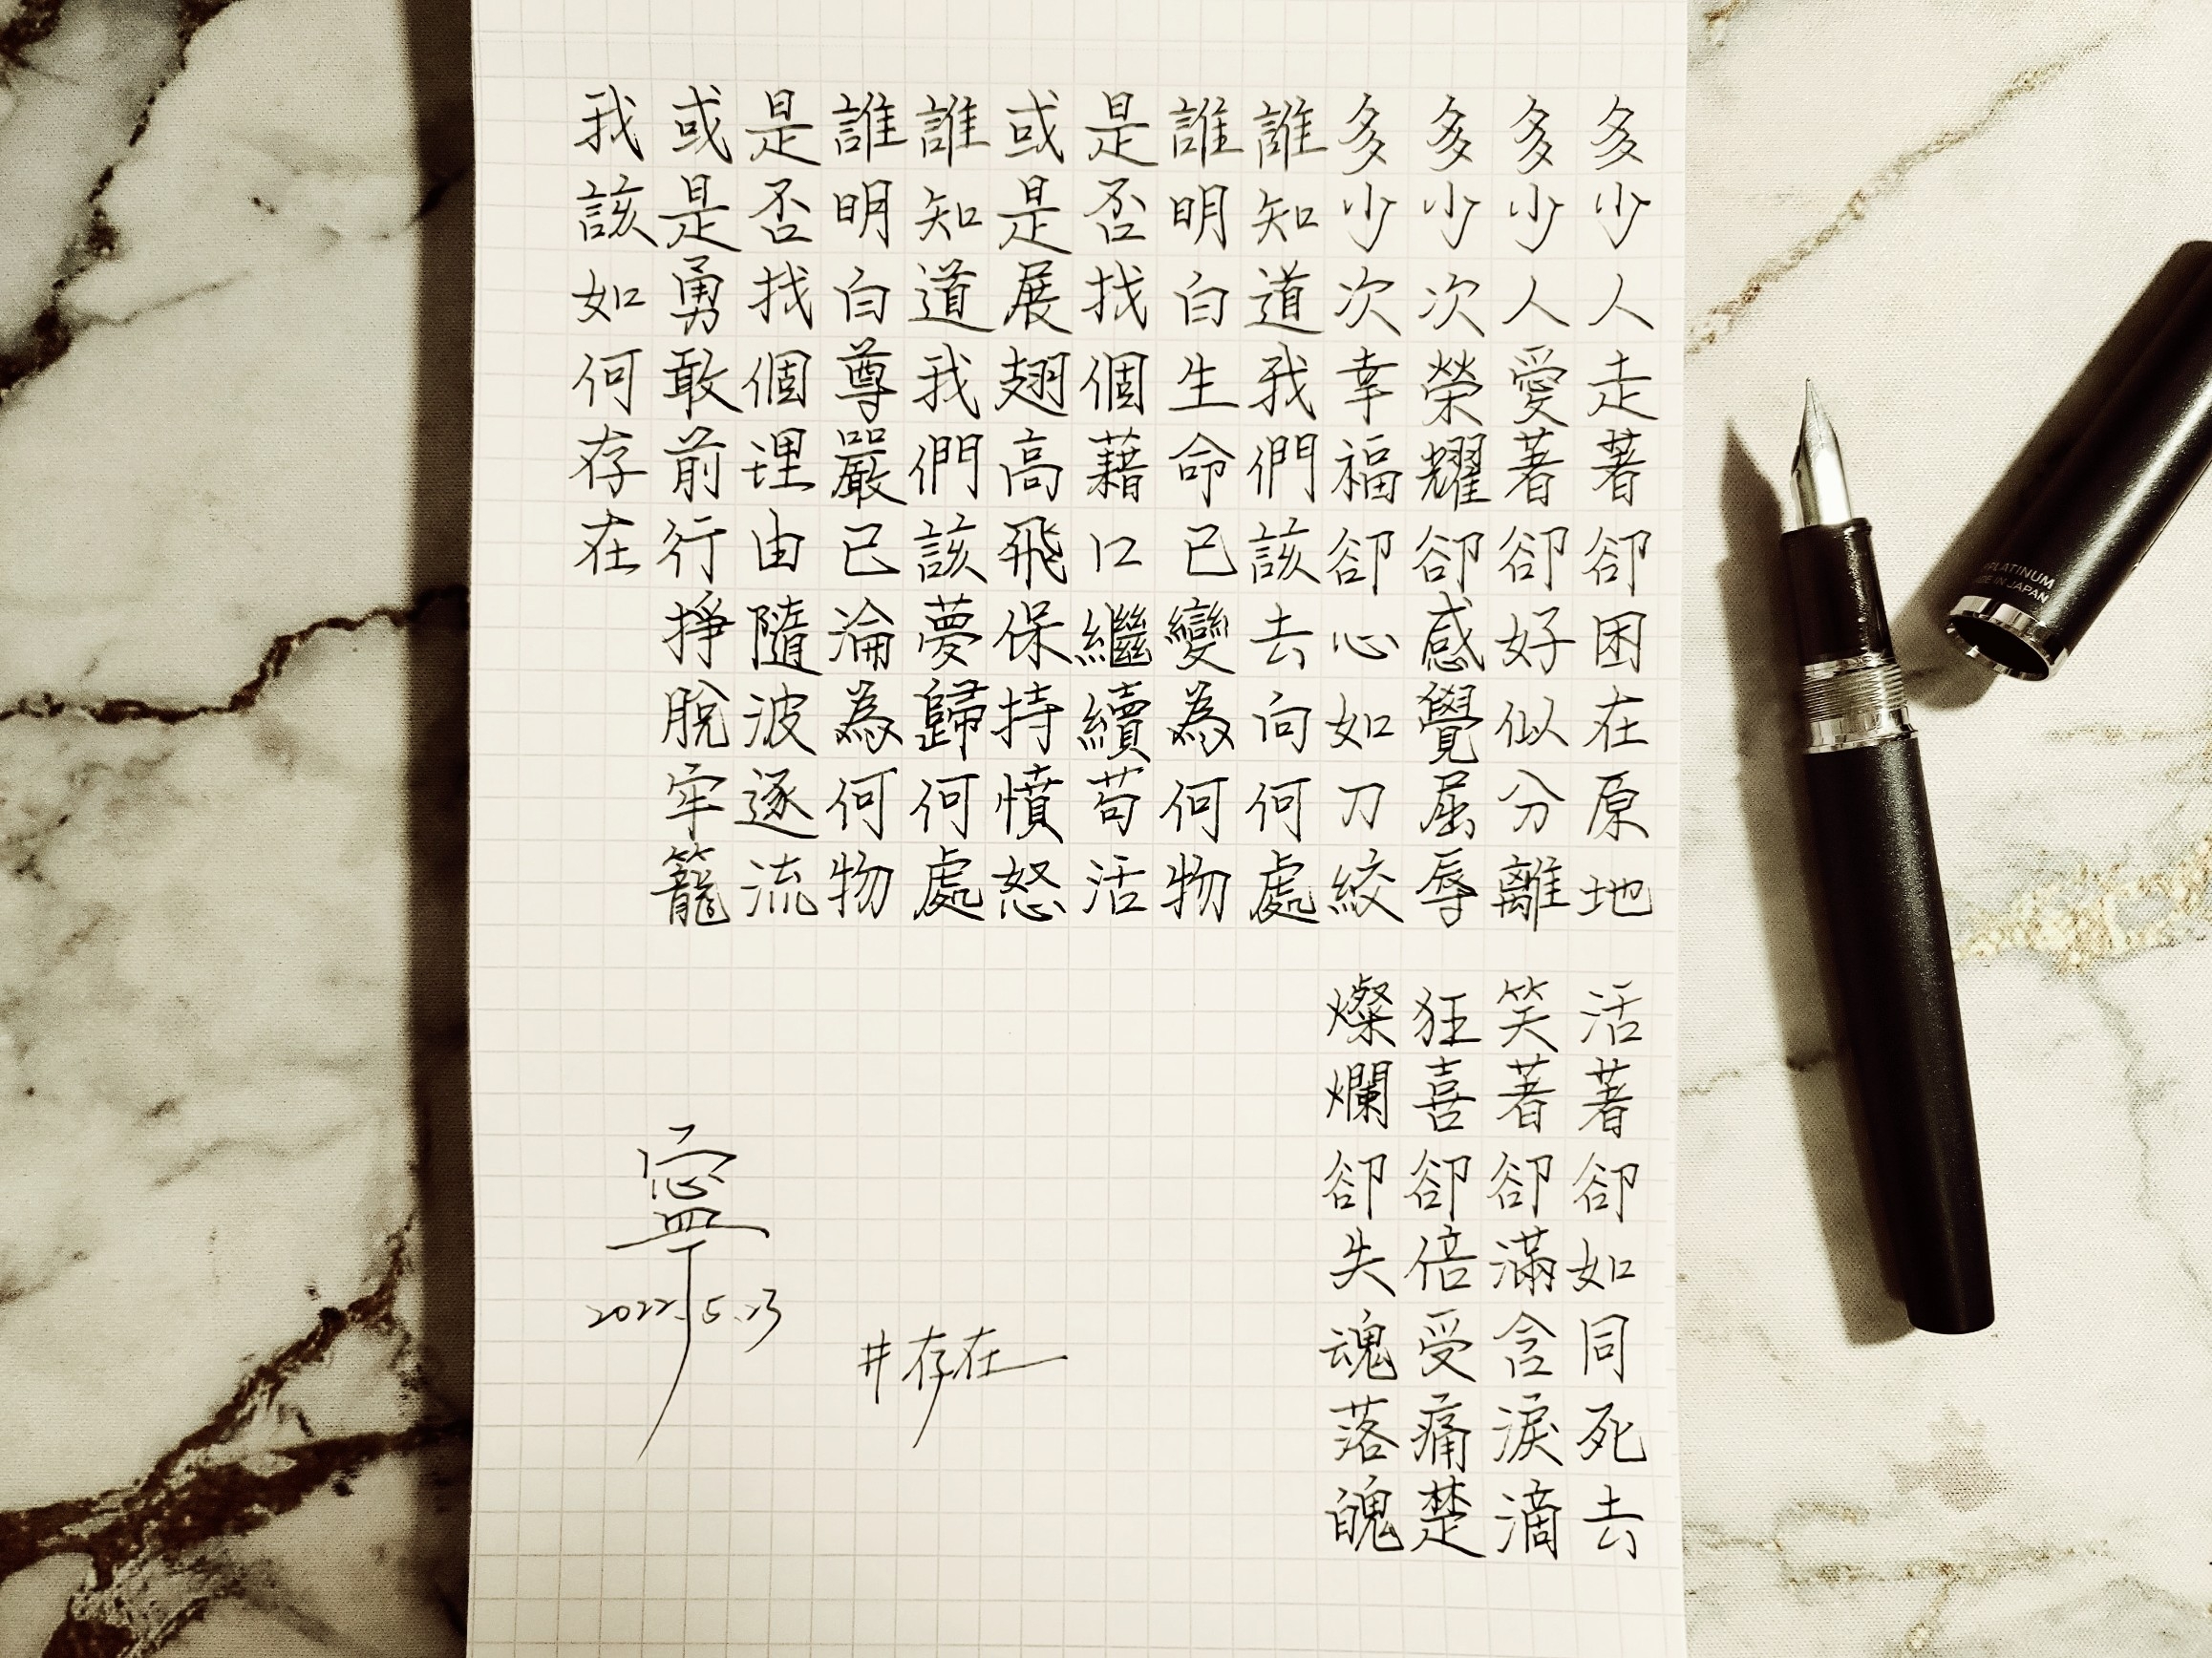 多少人走著卻困在原地 活著卻如同死去
多少人愛著卻好似分離 笑著卻滿含淚滴
多少次榮耀卻感覺屈辱 狂喜卻倍受痛楚
多少次幸福卻心如刀絞 燦爛卻失魂落魄
誰知道我們該去向何處
誰明白生命已變為何物
是否找個藉口繼續苟活
或是展翅高飛保持憤怒
誰知道我們該夢歸何處
誰明白尊嚴已淪為何物
是否找個理由隨波逐流
或是勇敢前行掙脫牢籠
我該如何存在
#存在
寧
2022.5.23
PLATINUM
MADE IN JAPAN